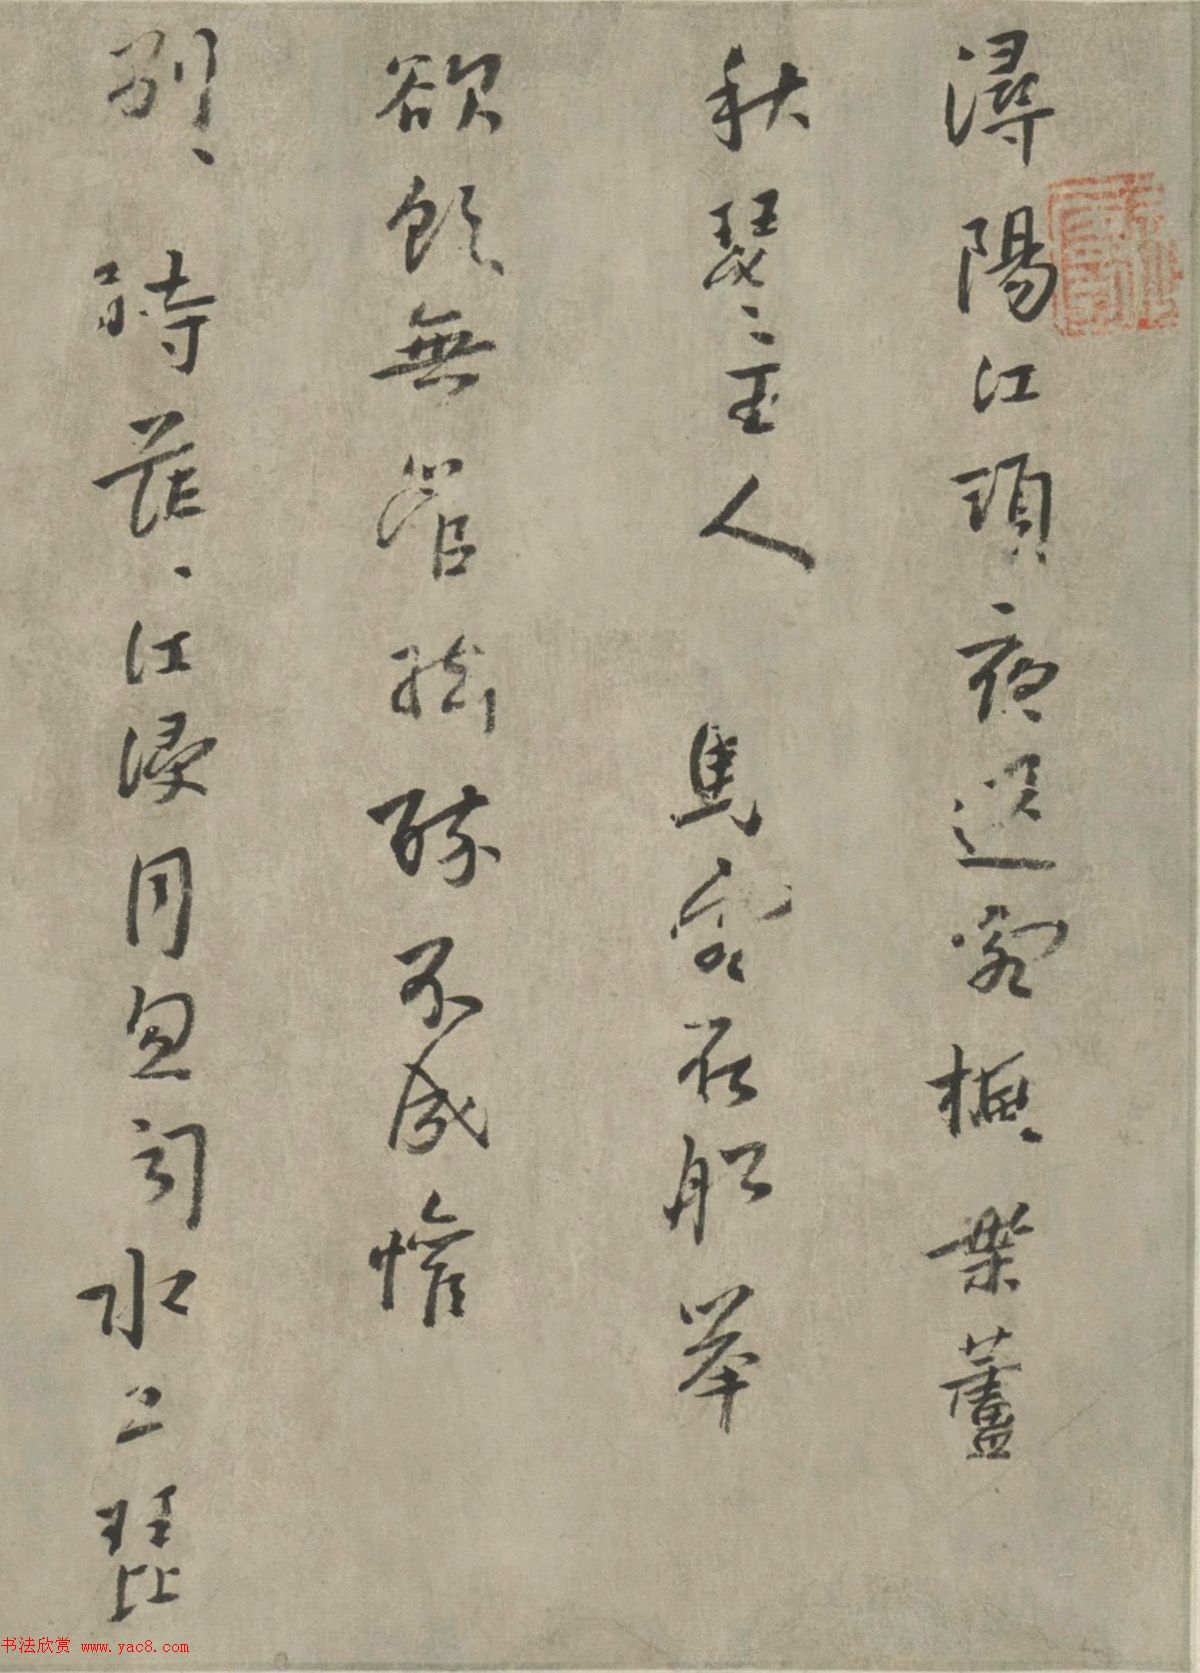 潯陽江頭夜送客楓葉蘆
秋瑟〻主人 馬客在船舉
欲飲無管絃醉不成懽
別〻時茫〻江浸月忽聞水上琵
书法欣赏 www.yac8.com